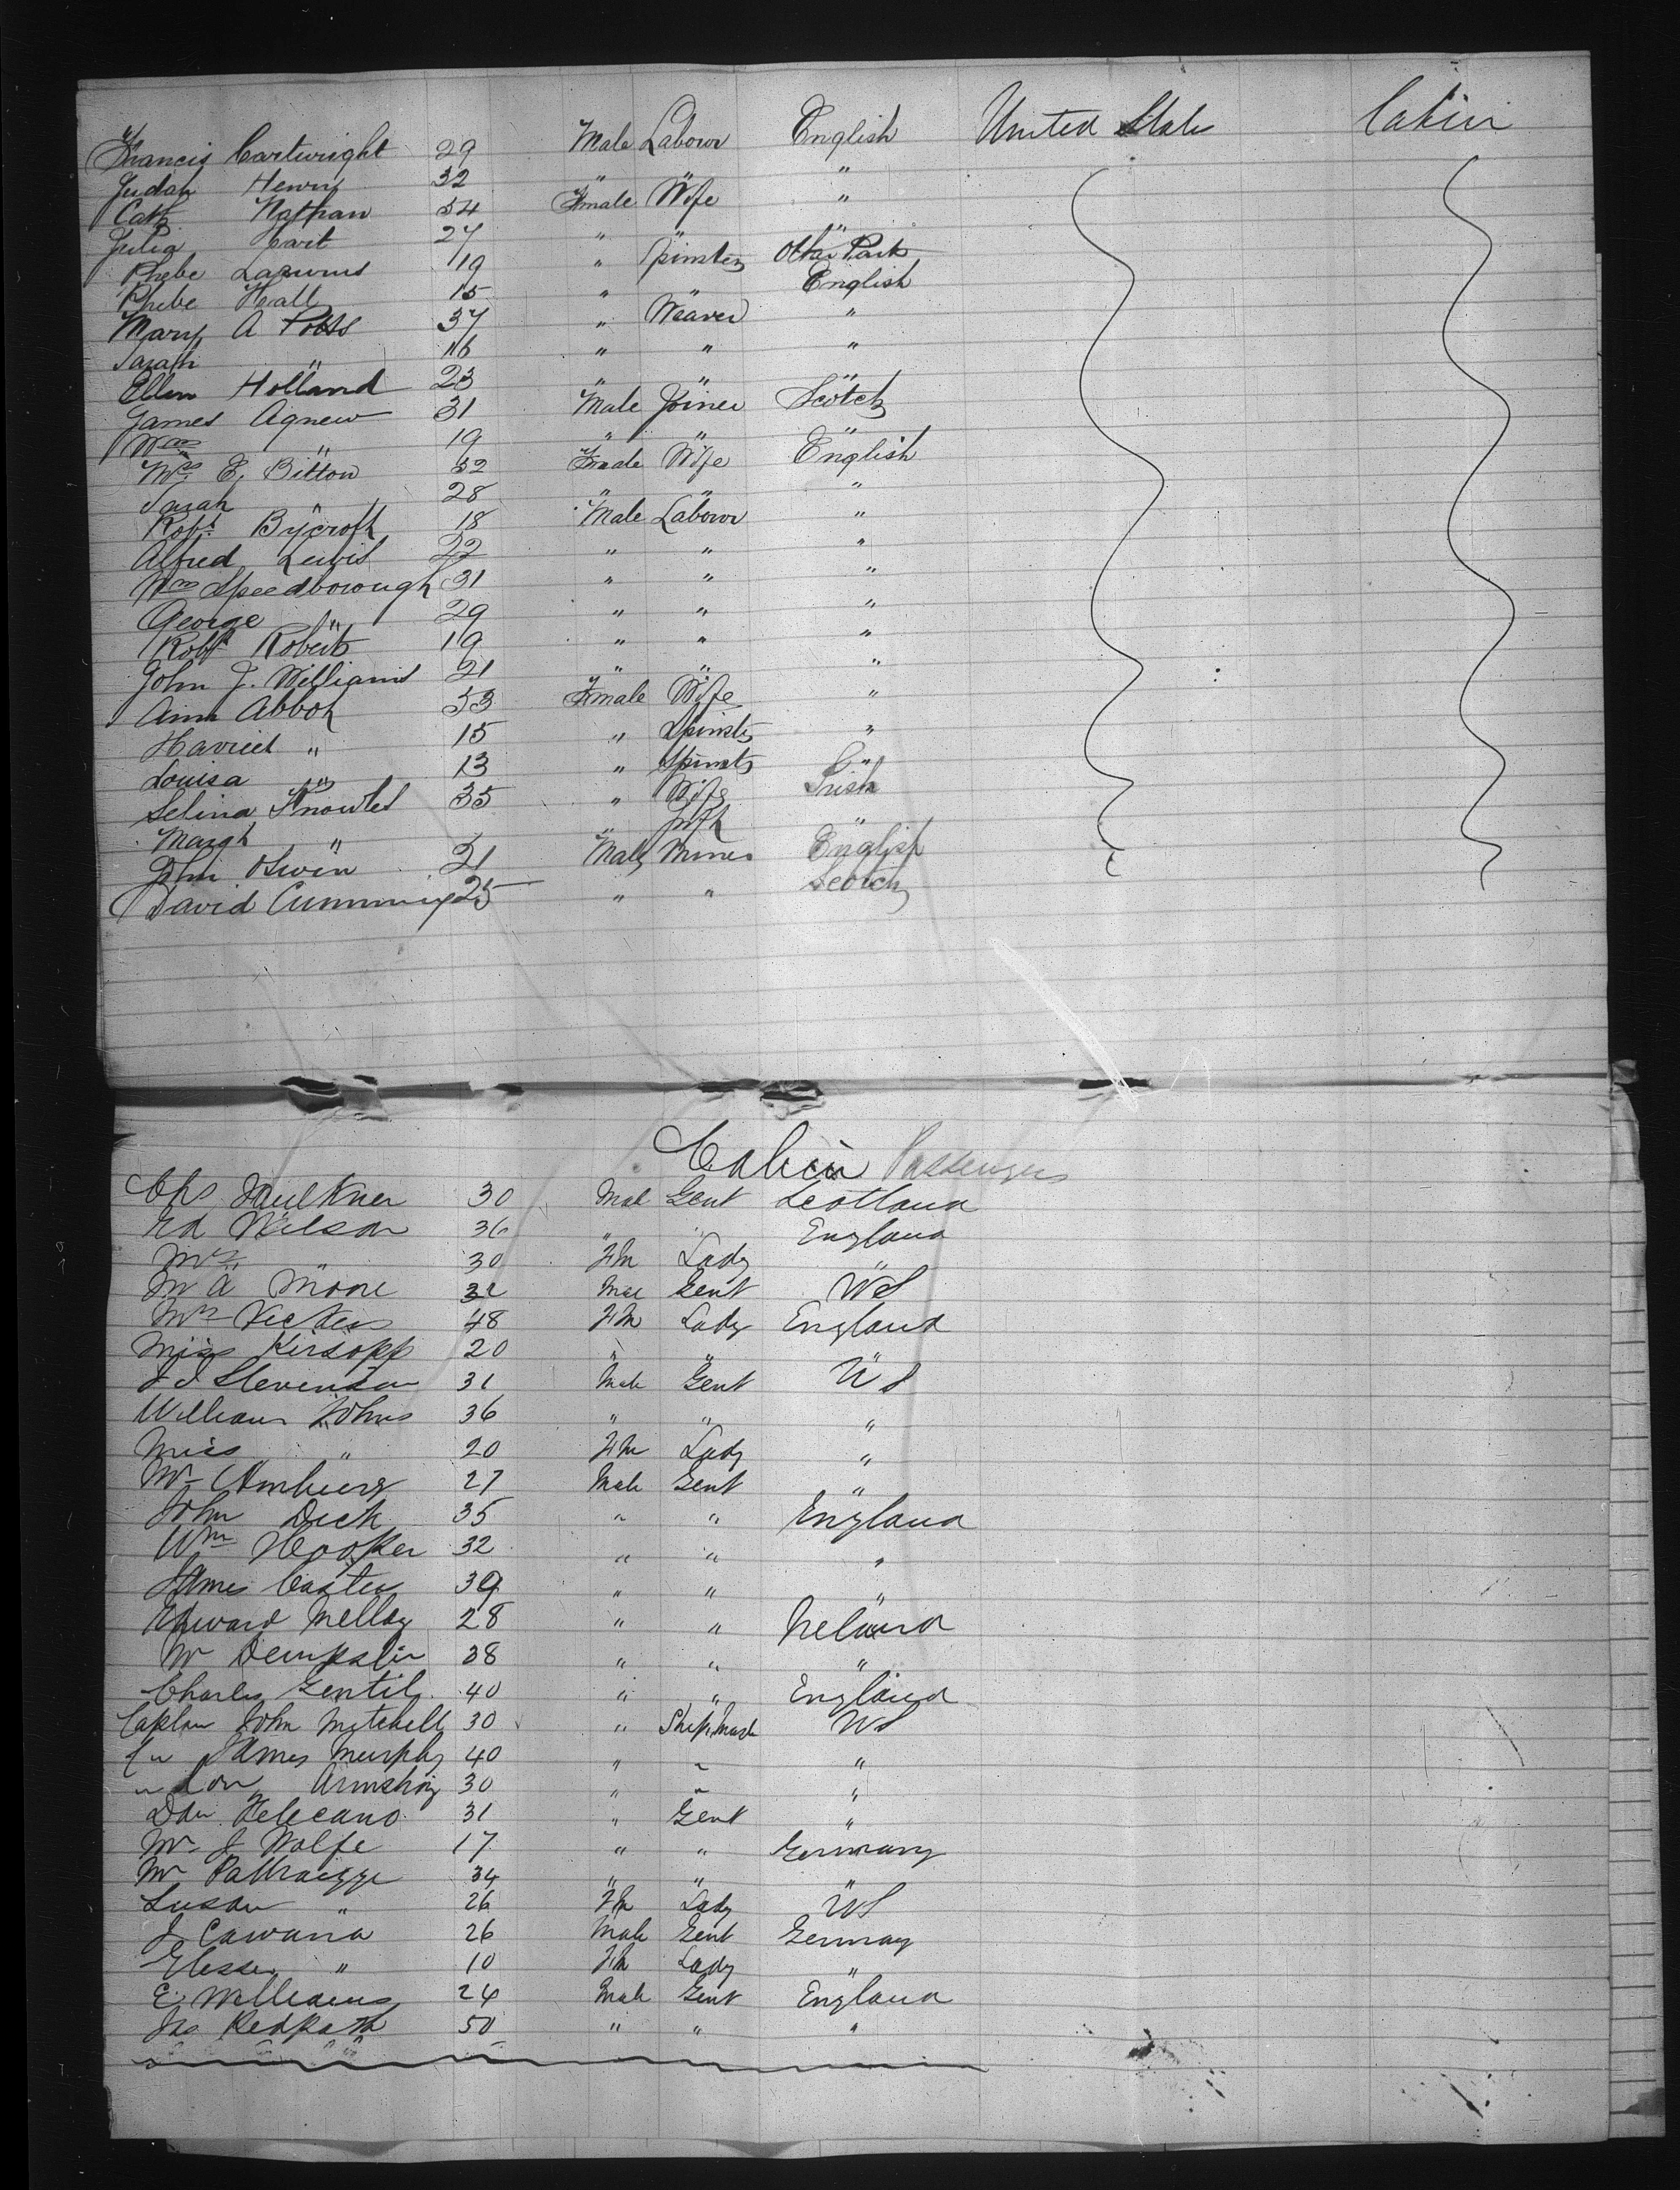 Francis Cartwright 29 Male Labour English United States Cabin
Judah Henry 32 " " "
Cath Nathan 54 Female Wife "
Julia Hart 27 " " "
Phebe Lazarus 19 " Spinster
Phebe Hall 15 " " English
Mary A Potts 37 " Weaver "
Sarah " 16 " " "
Ellen Holland 23 " " "
James Agnew 31 Male Joiner Scotch
Wm " 19 " " "
Mrs E. Bitton 32 Female Wife English
Sarah 28 " " "
Robt Bycroft 18 Male Labour "
Alfred Lewis 22 " " "
Wm Speedborough 31 " " "
George " 29 " " "
Robt Roberts 19 " " "
John J. Williams 21 " " "
Ann Abbot 33 Female Wife "
Harriet " 15 " Spinster "
Louisa " 13 " Spinster "
Selina Knowles 35 " Wife Irish
Margt " " Inft "
John 21 Male Miner English
David Cumming 25 " " Scotch
Cabin Passengers
Chs Faulkner 30 Mal Gent Scotland
Ed Wilson 36 " " England
Mrs " 30 Fm Lady "
M A Moore 32 Male Gent US
Mrs 48 Fm Lady England
Miss Kirsopp 20 " " "
J J Stevenson 31 Male Gent US
William Johns 36 " " "
Miss " 20 Fm Lady "
Mr 27 Male Gent "
John Dick 35 " " England
Wm Hooker 32 " " "
James Carter 39 " " "
Edward Melloy 28 " " Ireland
Mr Dempster 38 " " "
Charles Gentil 40 " " England
Captan John Mitchell 30 " Ship Mast US
" James Murphy 40 " " "
" Armstrong 30 " " "
Dan Felecano 31 " Gent "
Mr J Wolfe 17 " " Germany
Mr 34 " " "
Susan " 26 Fm Lady US
J Cawana 26 Male Gent Germany
" 10 Fm Lady "
E Williams 24 Male Gent England
Jas Redpath 50 " " "